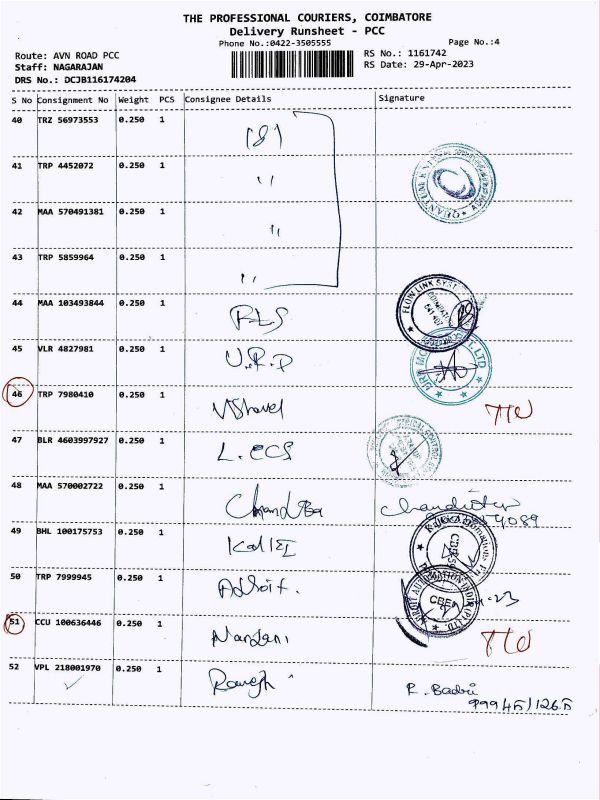 THE PROFESSIONAL COURIERS, COIMBATORE
Delivery Runsheet - PCC
Phone No.:0422-3505555
Page No.:4
Route: AVN ROAD PCC
RS No.: 1161742
Staff: NAGARAJAN
RS Date: 29-Apr-2023
DRS No.: DCJB116174204
S No Consignment No Weight PCS Consignee Details Signature
40 TRZ 56973553 0.250 1
41 TRP 4452072 0.250 1 "
42 MAA 570491381 0.250 1 "
43 TRP 5859964 0.250 1 "
44 MAA 103493844 0.250 1 RLS
FLOW LINK SYST
45 VLR 4827981 0.250 1 U.R.P
46 TRP 7980410 0.250 1
47 BLR 4603997927 0.250 1 L.ECS
48 MAA 570002722 0.250 1
4089
49 BHL 100175753 0.250 1
50 TRP 7999945 0.250 1 Adroit.
51 CCU 100636446 0.250 1
52 VPL 218001970 0.250 1 Ramesh
R. Badri